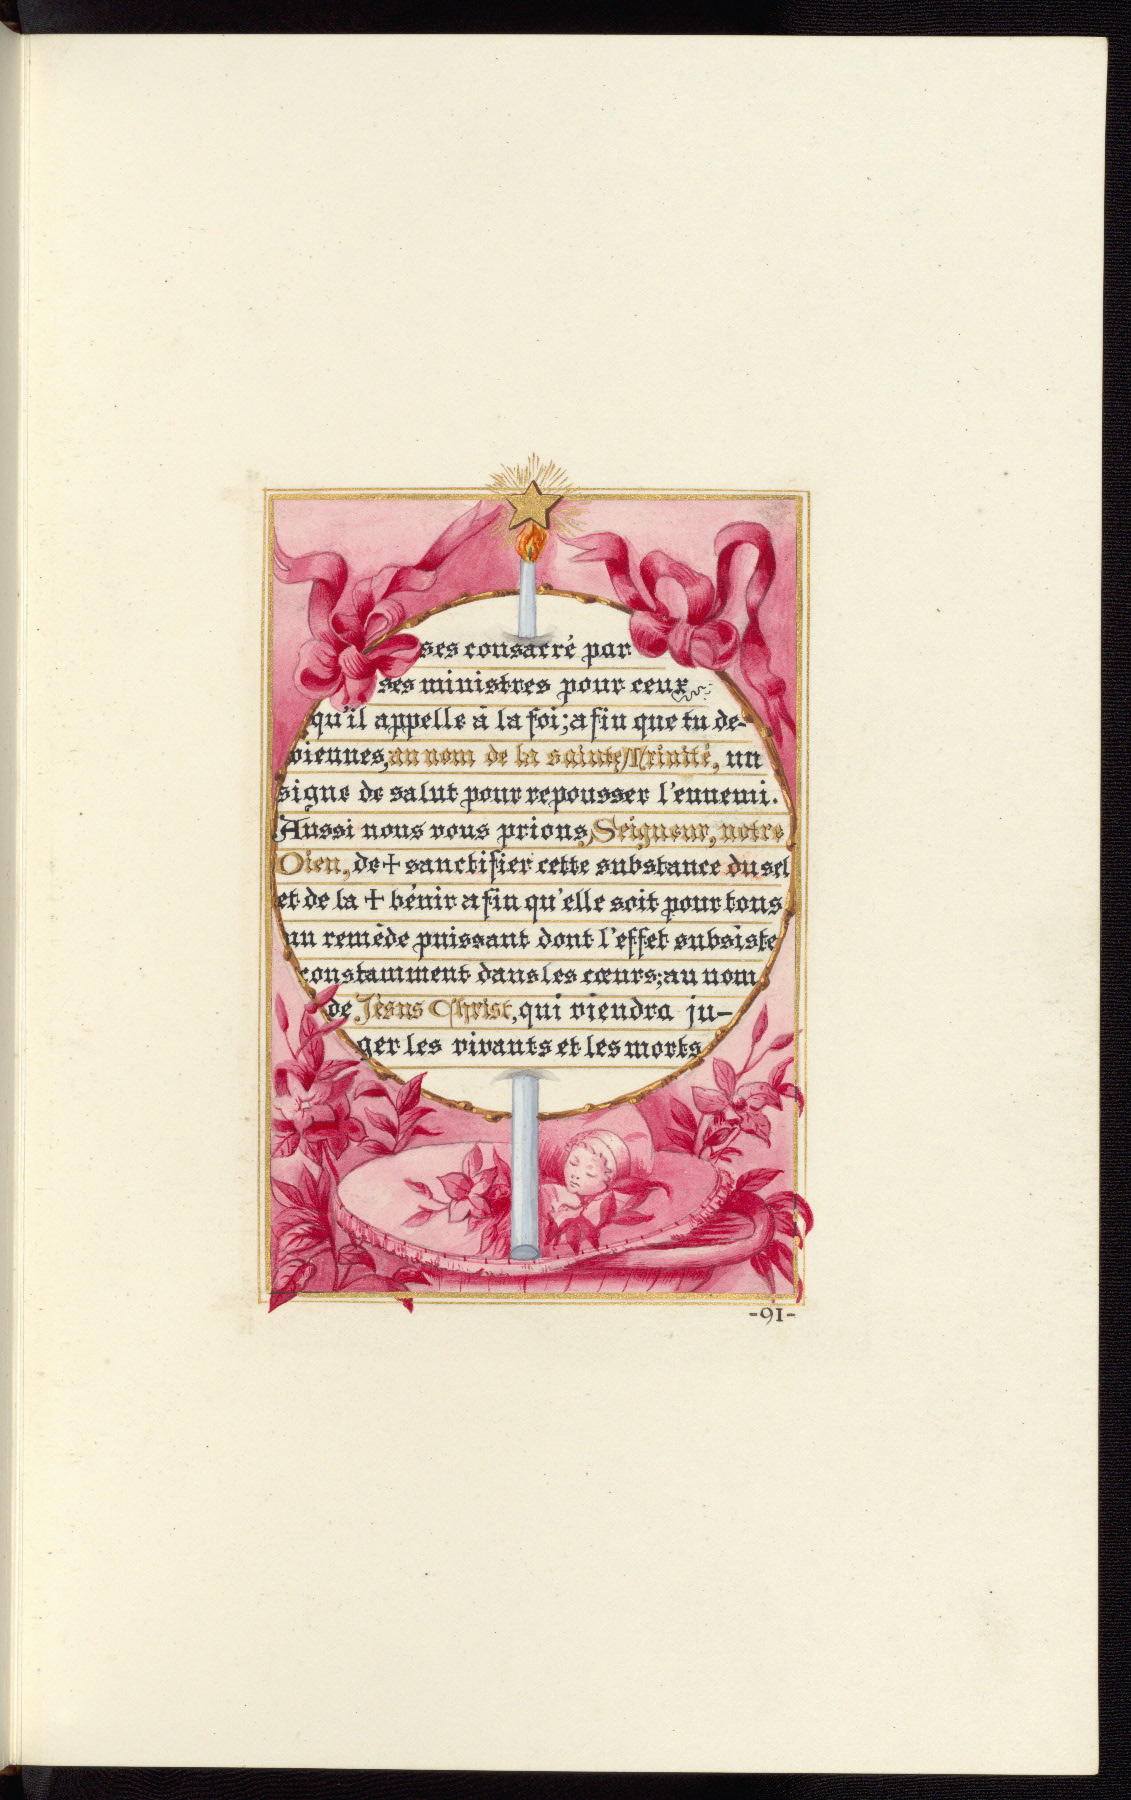 ses consacré par
ses ministres pour ceux
qu'il appelle à la foi; afin que tu de-
viennes, au nom de la sainte Trinité, un
signe de salut pour repousser l'ennemi.
Aussi nous vous prions, Seigneur, notre
Dieu, de + sanctifier cette substance du sel
et de la + bénir afin qu'elle soit pour tous
un remède puissant dont l'effet subsiste
constamment dans les cœurs; au nom
de Jésus Christ, qui viendra ju-
ger les vivants et les morts
-91-